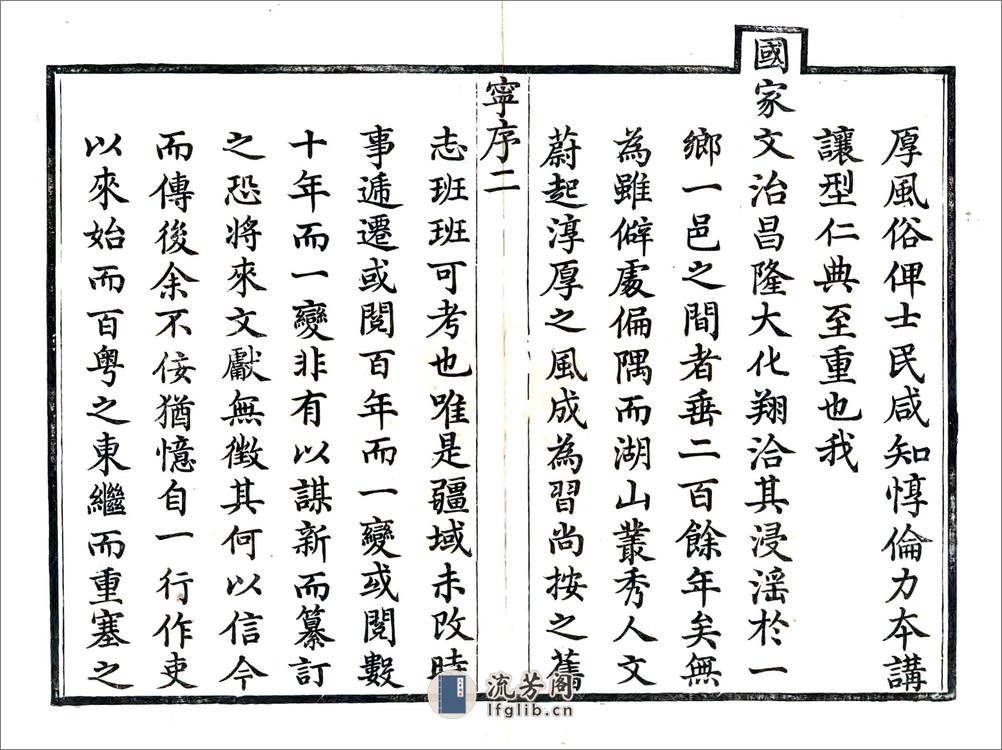 厚風俗俾士民咸知惇倫力本講
讓型仁典至重也我
國家文治昌隆大化翔洽其浸滛於一
鄉一邑之間者垂二百餘年矣無
為雖僻處偏隅而湖山叢秀人文
蔚起淳厚之風成為習尚按之舊
寧序二
志班班可考也唯是疆域未改時
事遞遷或閱百年而一變或閱數
十年而一變非有以謀新而纂訂
之恐將來文獻無徵其何以信今
而傳後余不佞猶憶自一行作吏
以來始而百粵之東繼而重塞之
流芳阁
lfglib.cn